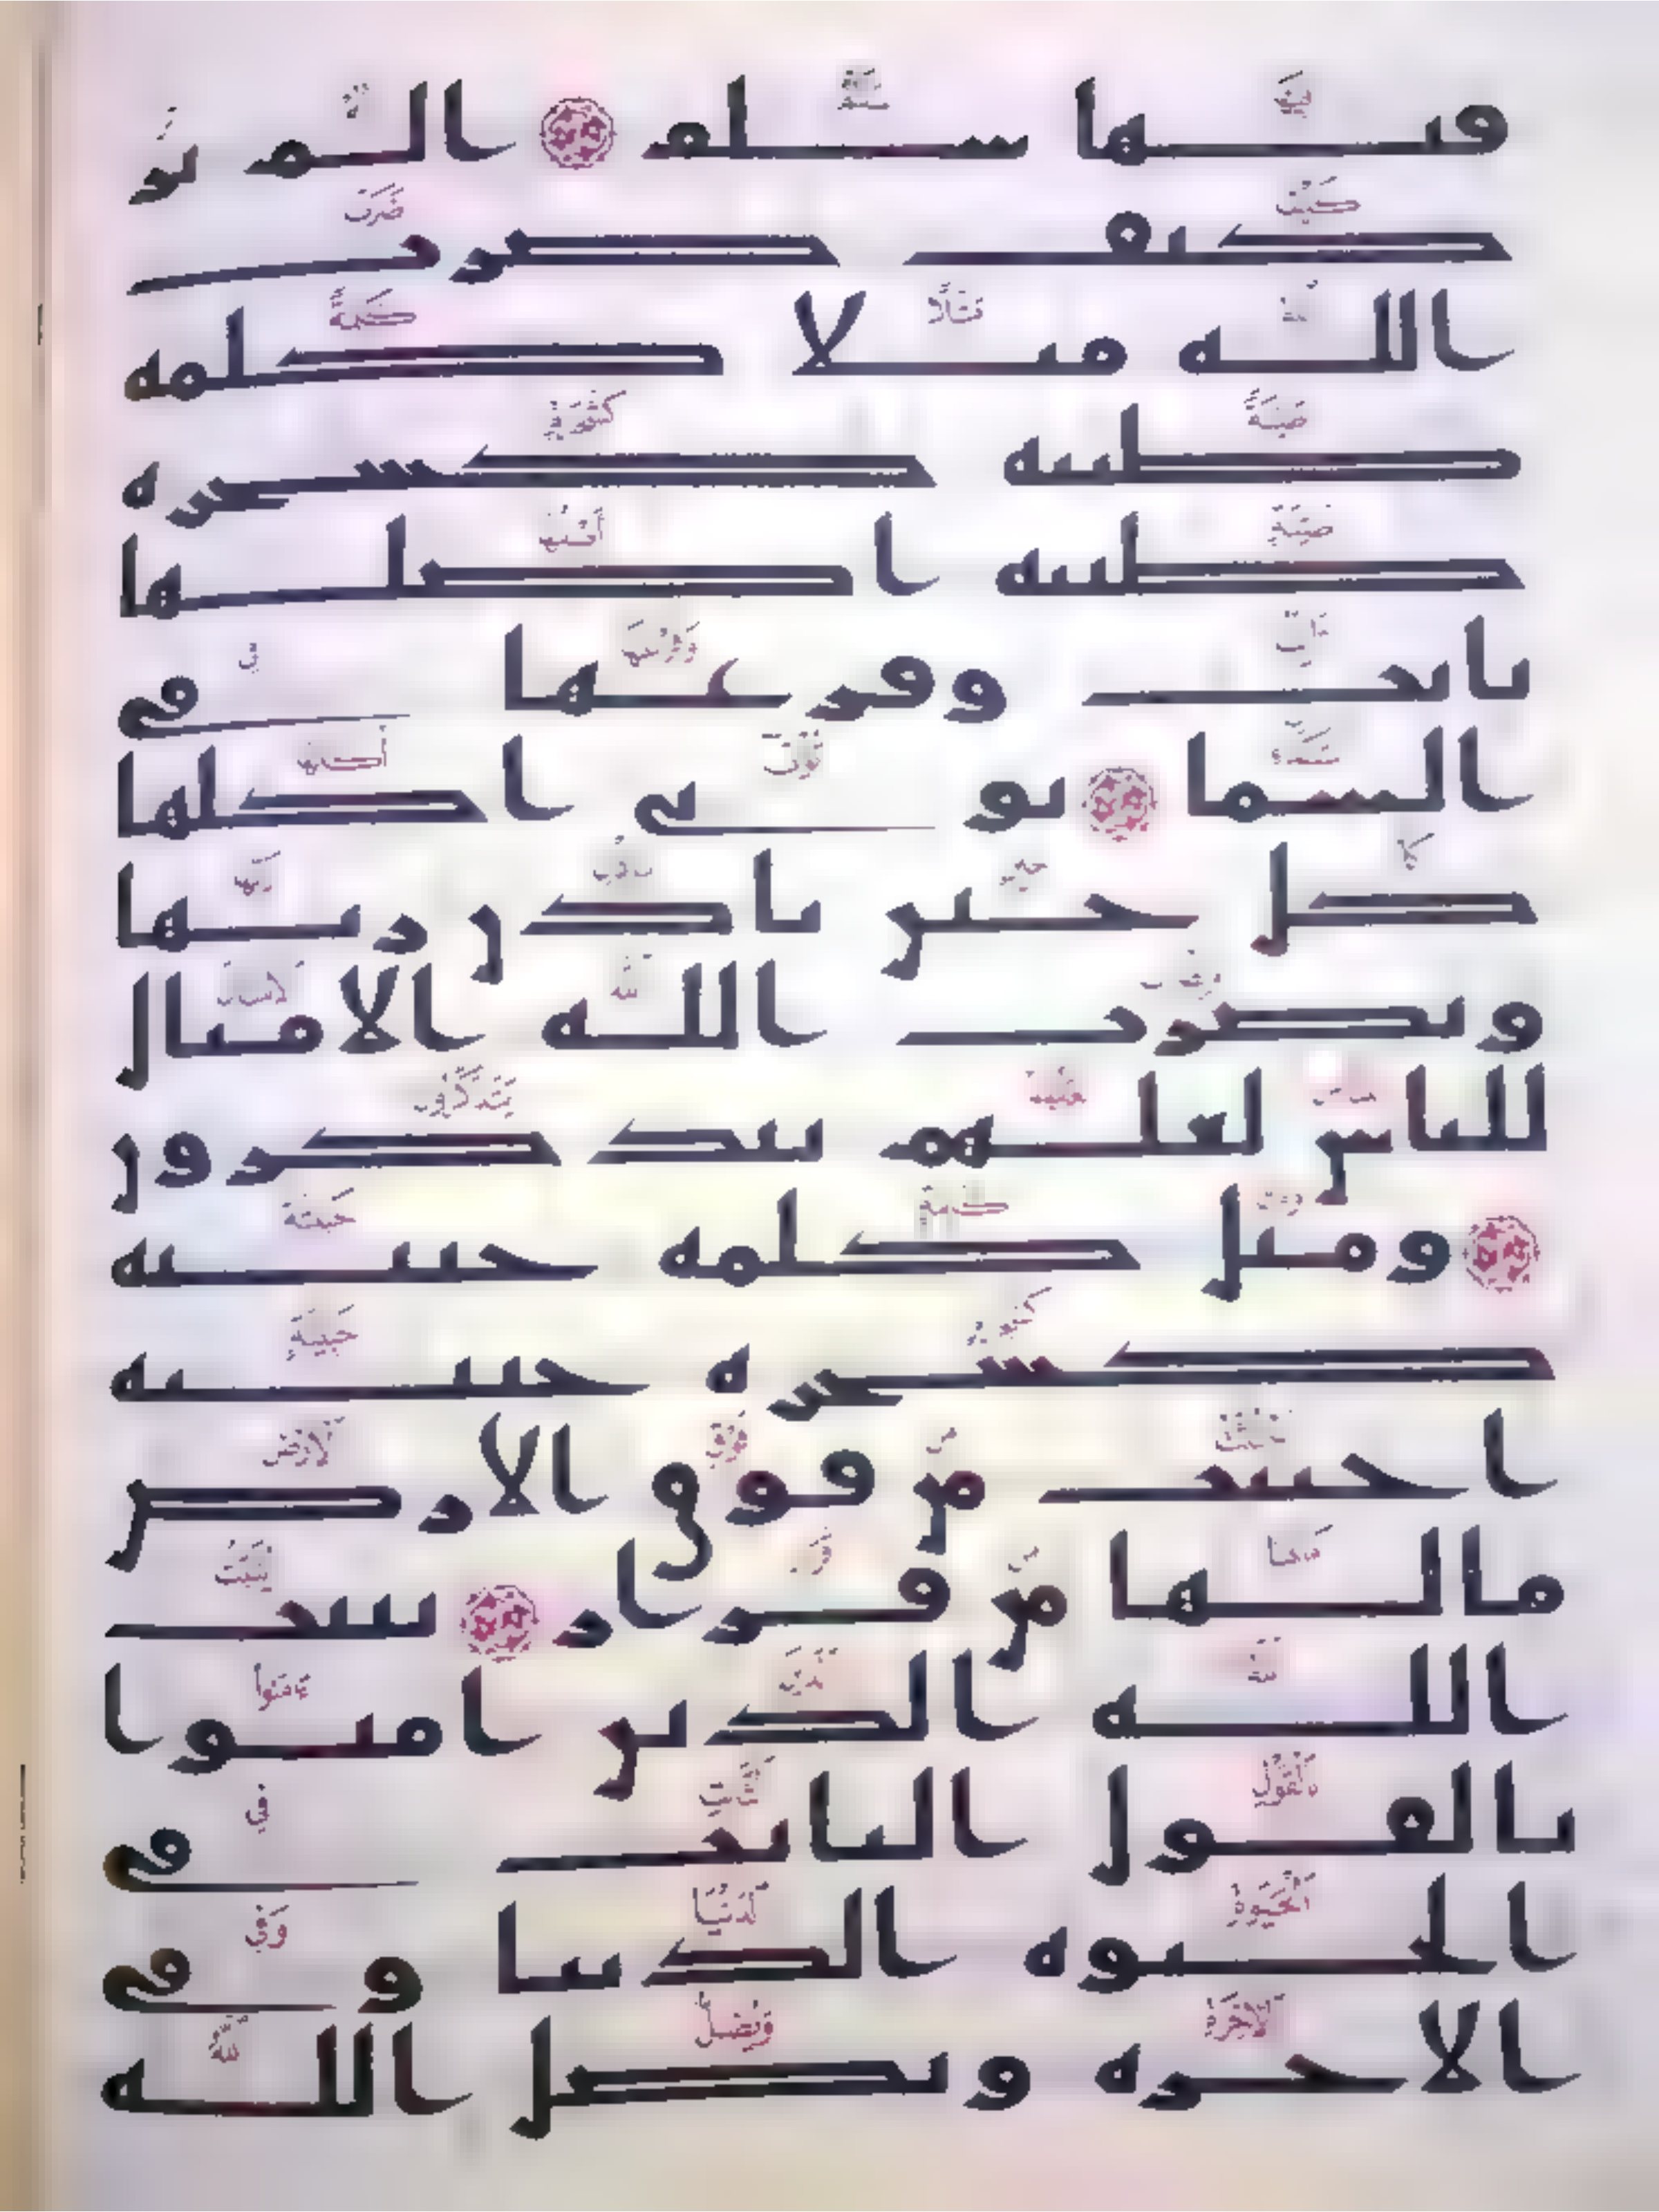 فيها سلم الم تر
كيف ضرب
الله مثلا كلمه
طيبه كشجره
طيبه اصلها
ثابت وفرعها في
السما توتي اكلها
كل حين باذن ربها
ويضرب الله الامثال
للناس لعلهم يتذكرون
ومثل كلمه خبيثه
كشجره خبيثه
اجتثت من فوق الارض
مالها من قرار يثبت
الله الذين امنوا
بالقول الثابت في
الحيوه الدنيا وفي
الاخره ويضل الله